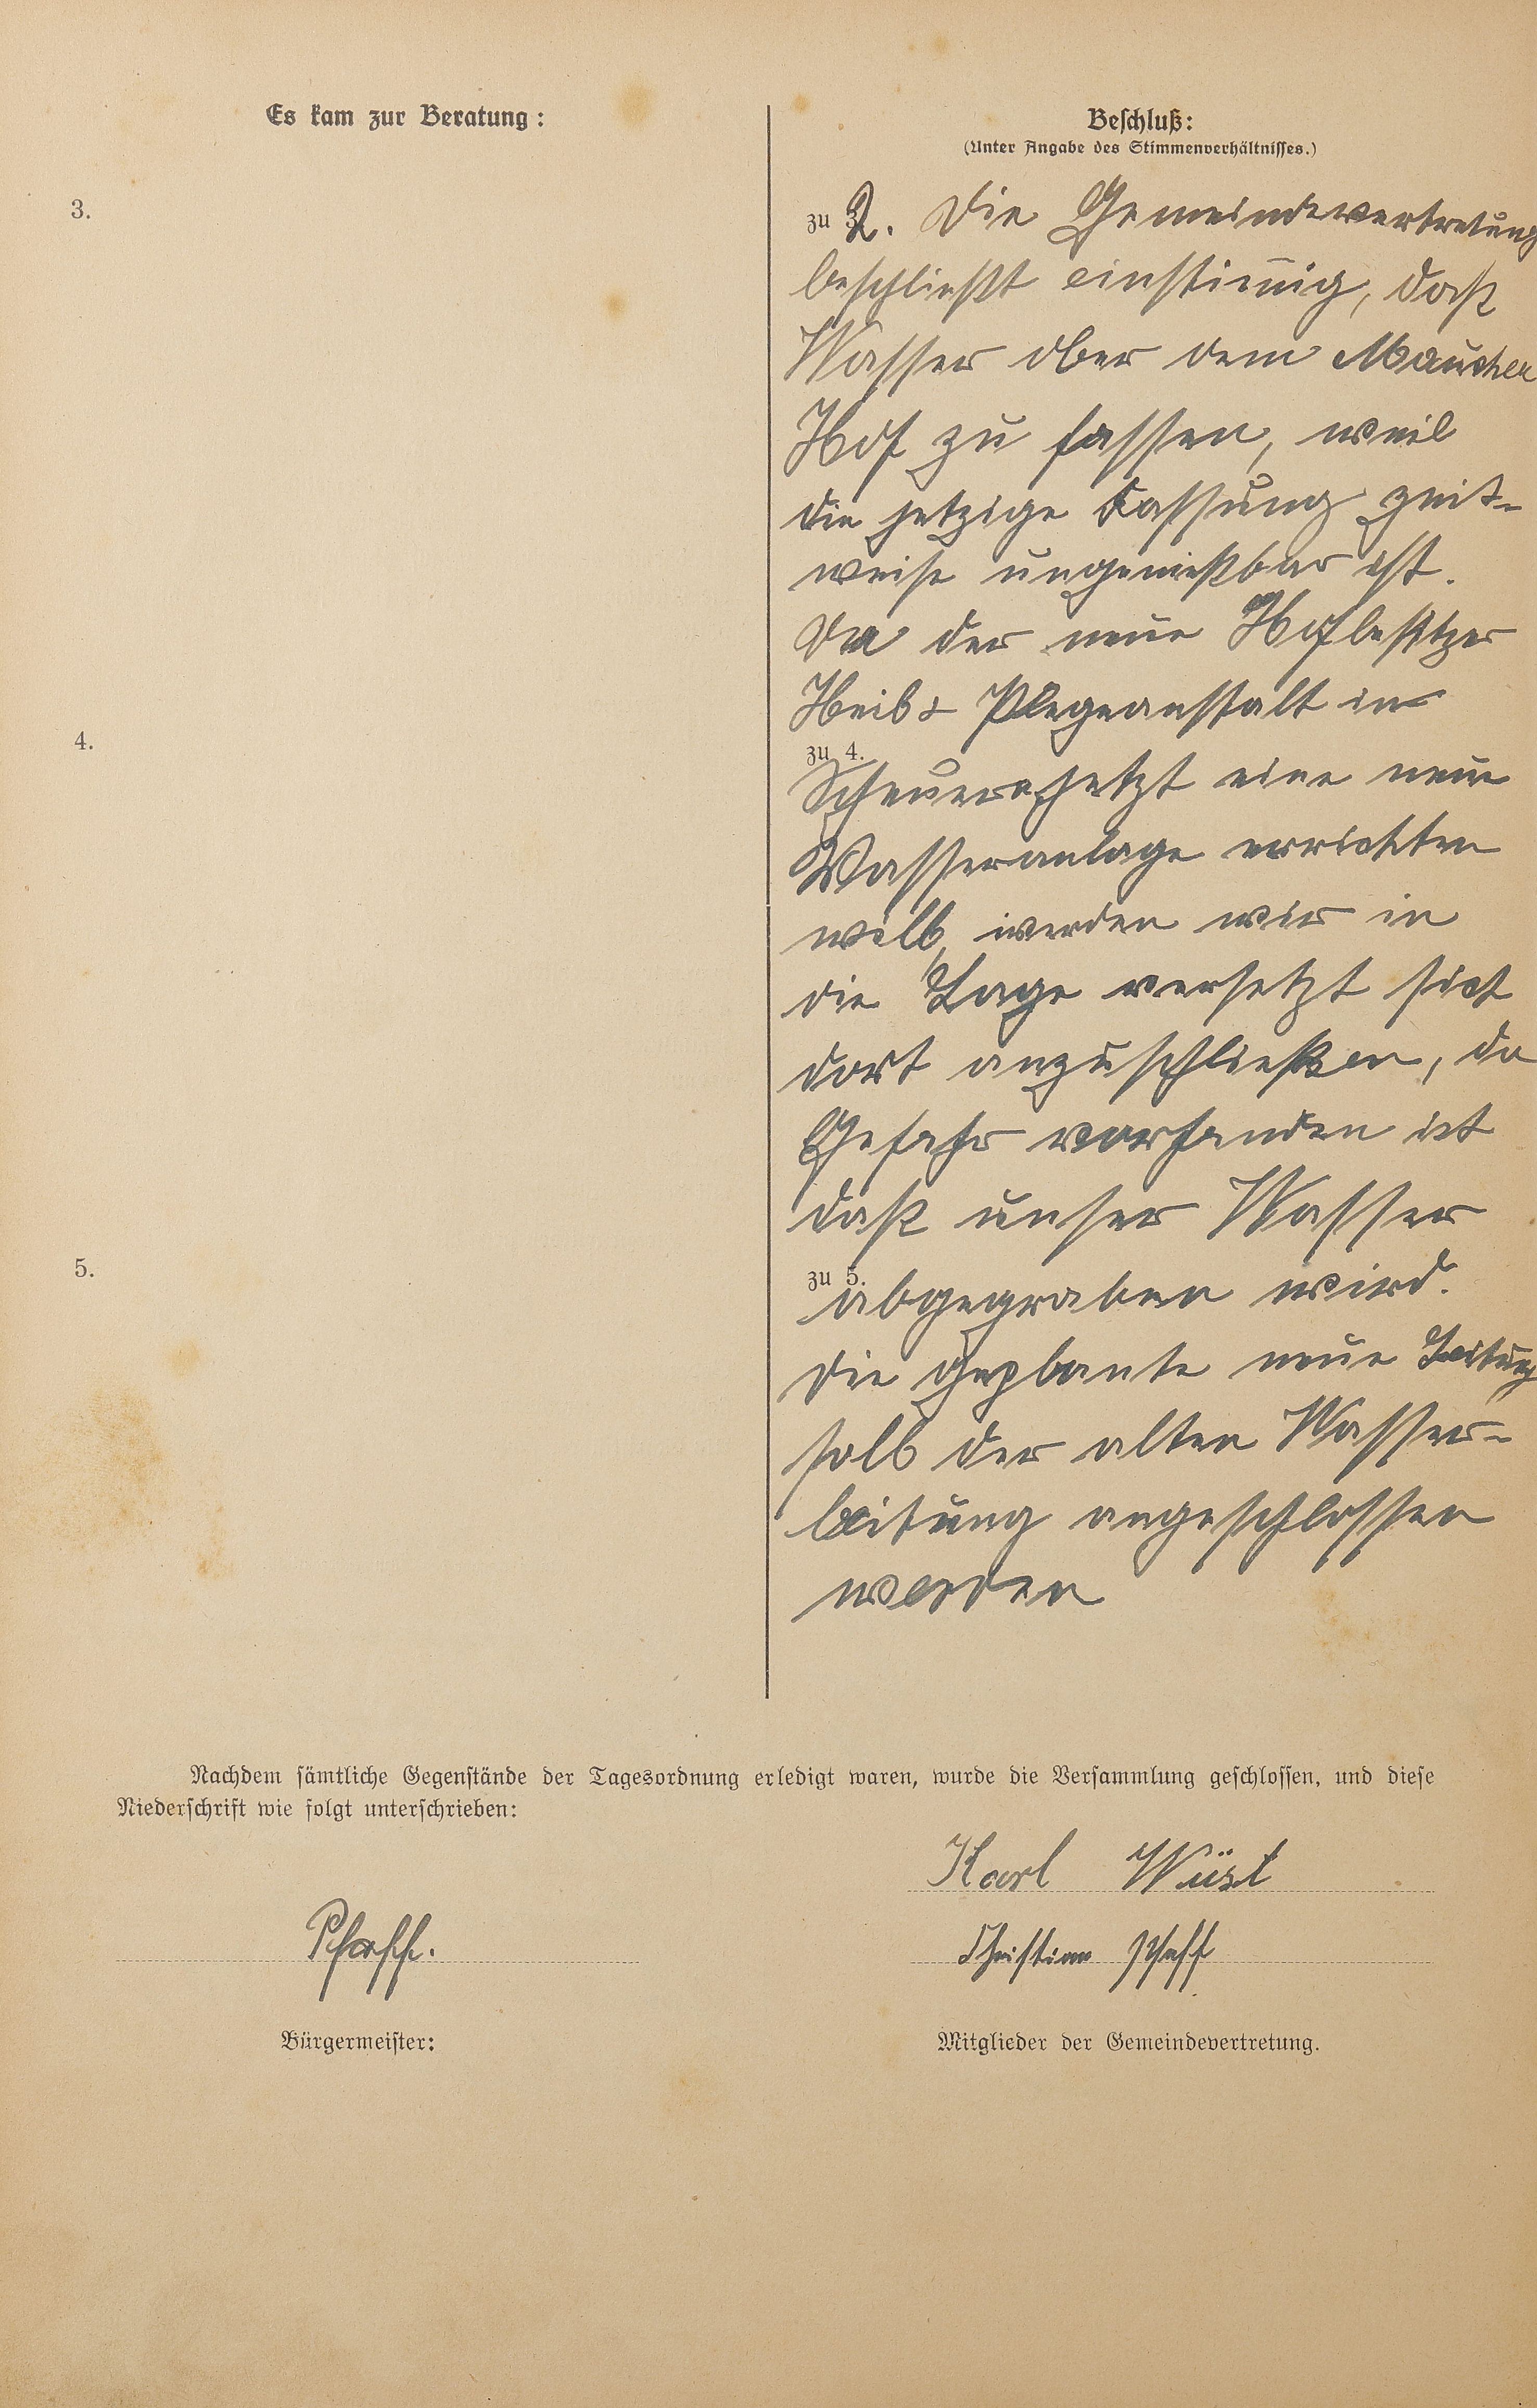 Es kam zur Beratung:
3.
4.
5.
Beschluß:
(Unter Angabe des Stimmenverhältnisses.)
zu 2. Die Gemeindevertretung
beschließt einstimig, daß
Wasser ober dem Maucher
Hof zu fassen, weil
die jetzige Fassung zeit-
weise ungenießbar ist.
Da der neue Hofbesitzer
Heil & Plegeanstalt in
zu 4.
Scheuern jetzt eine neue
Wasseranlage errichten
will, werden wir in
die Lage versetzt sich
dort anzuschließen, da
Gefahr vorhanden ist
daß unser Wasser
zu 5.
abgegraben wird.
Die geplante neue Leitung
soll der alten Wasser-
leitung angeschlossen
werden
Nachdem sämtliche Gegenstände der Tagesordnung erledigt waren, wurde die Versammlung geschlossen, und diese
Niederschrift wie folgt unterschrieben:
Karl Wüst
Pfaff.
Christian Pfaff
Bürgermeister:
Mitglieder der Gemeindevertretung.